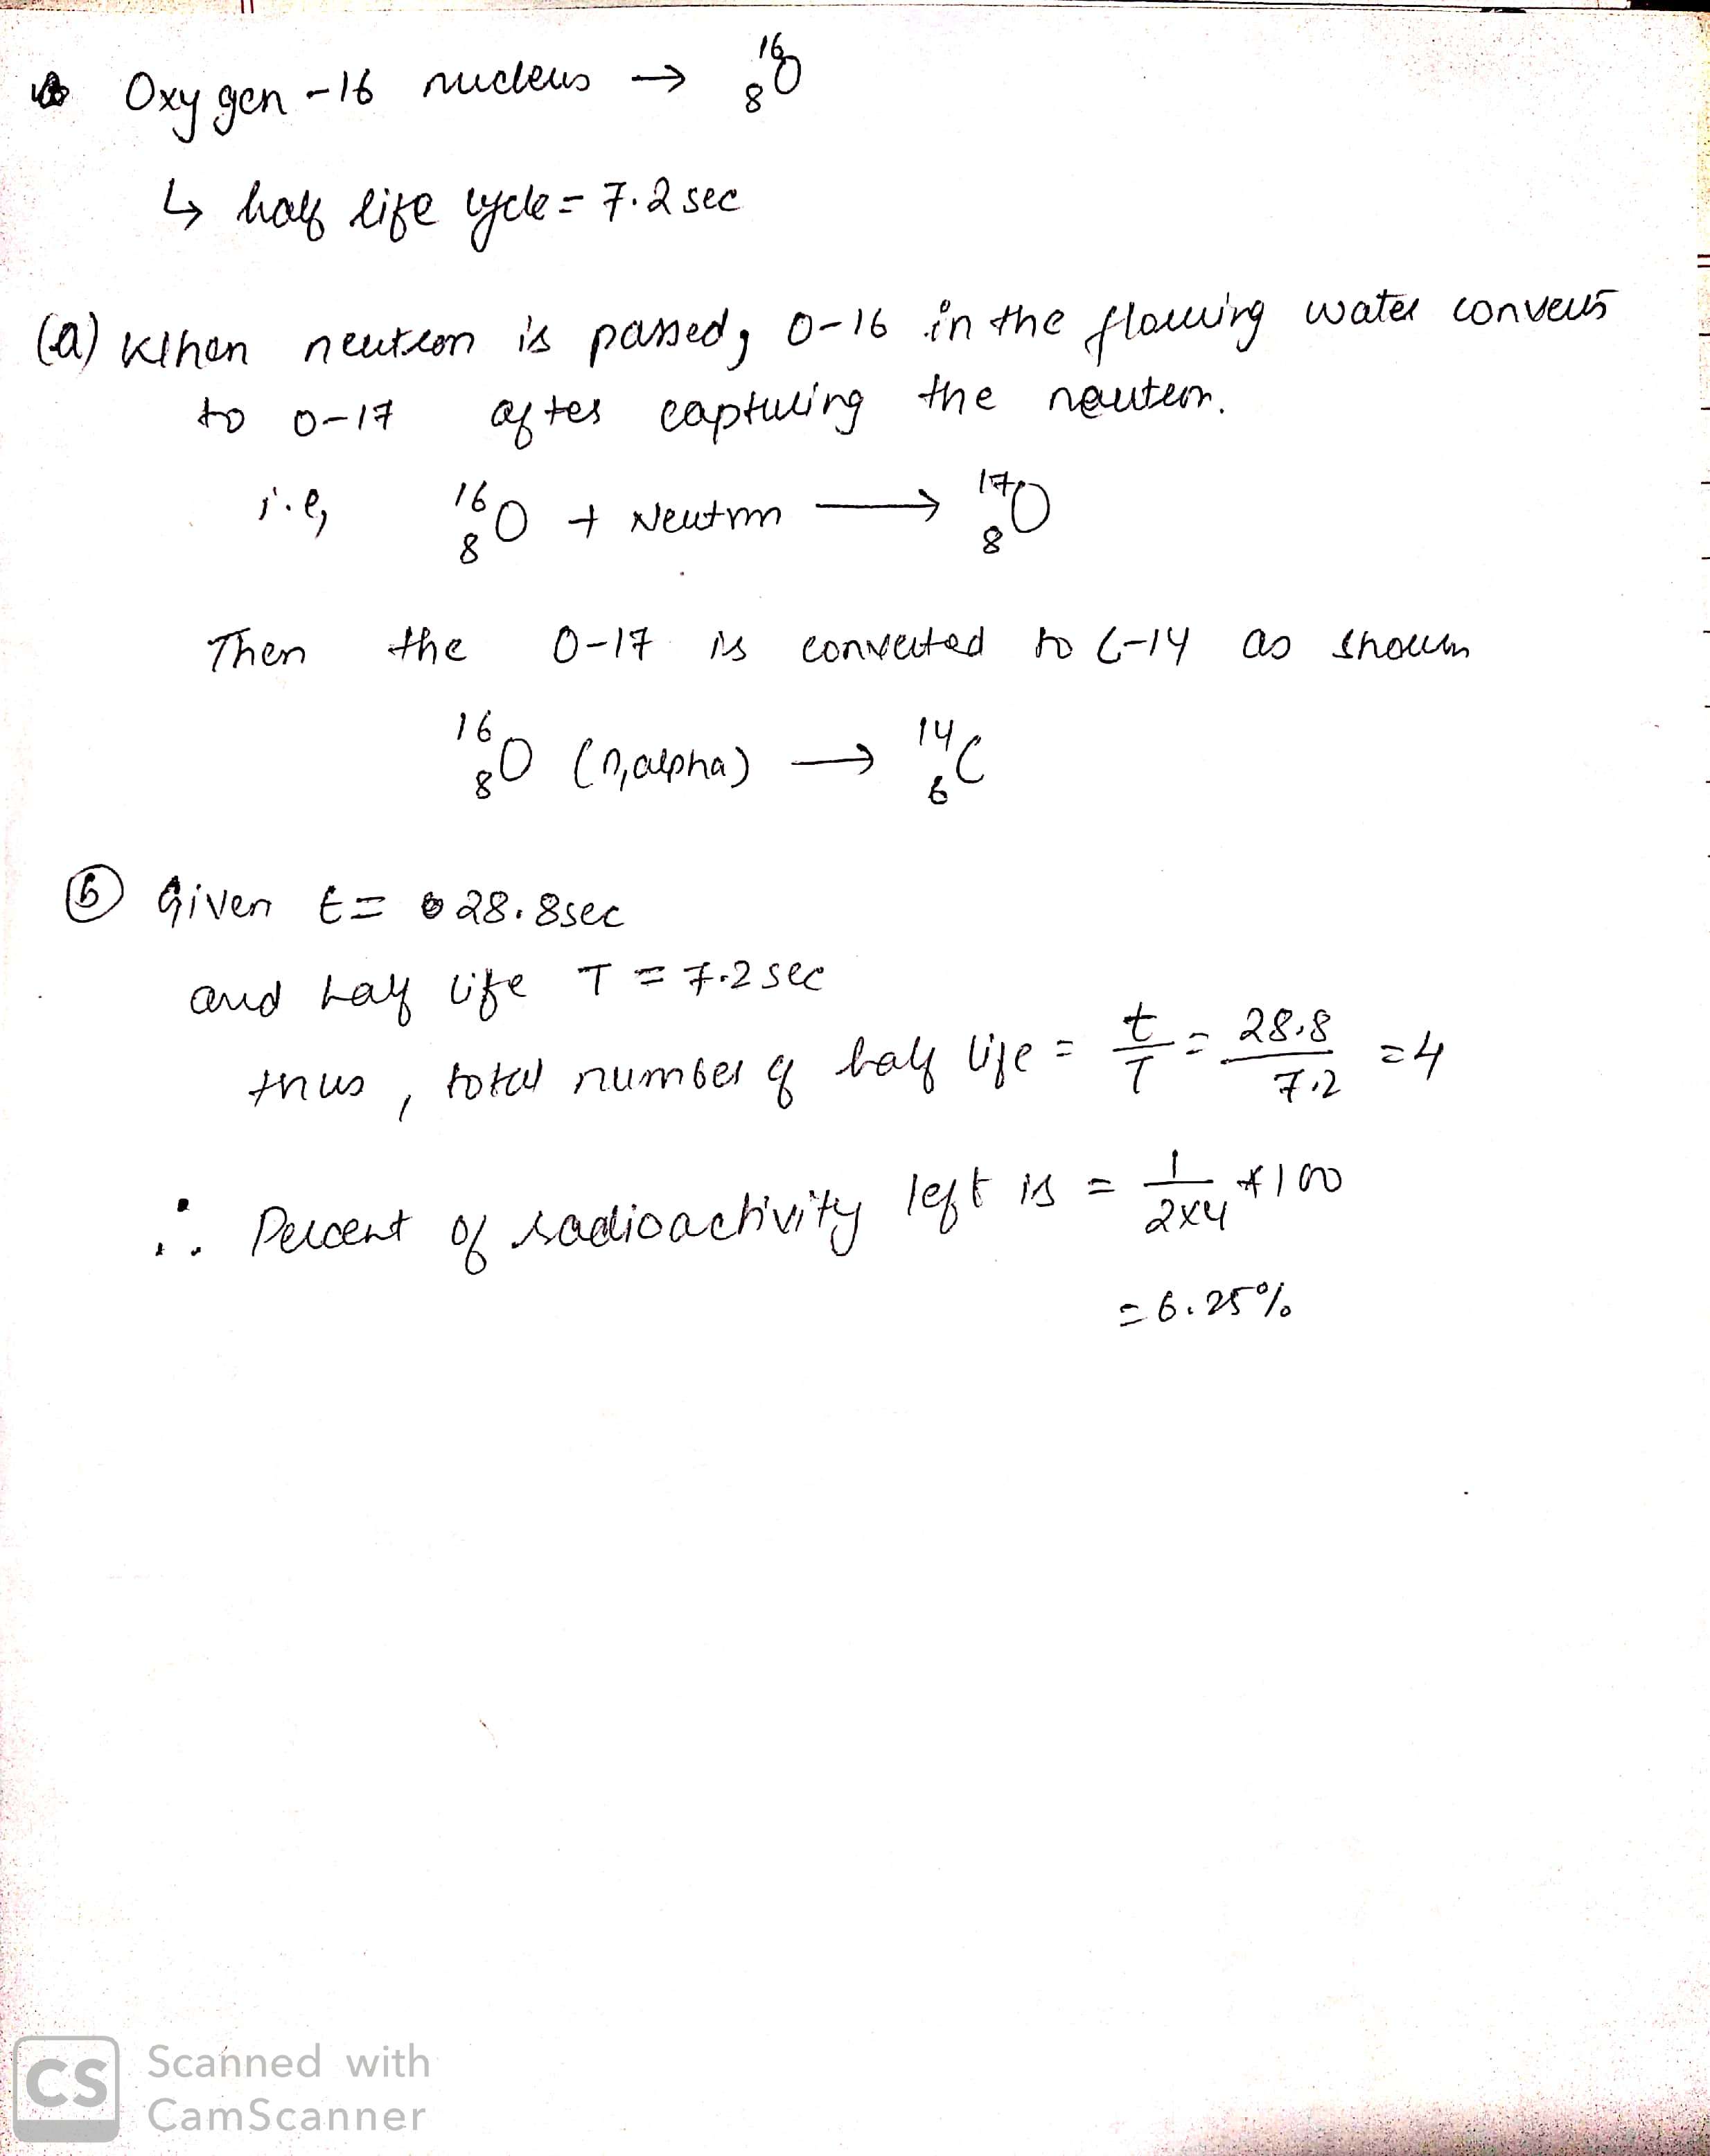 Oxygen-16 nucleus → ¹⁶₈O
↳ half life cycle = 7.2 sec
(a) When neutron is passed, O-16 in the flowing water converts
to O-17 after capturing the neutron.
i.e, ¹⁶₈O + Neutron ⟶ ¹⁷₈O
Then the O-17 is converted to C-14 as shown
¹⁶₈O (n,alpha) ⟶ ¹⁴₆C
ⓑ Given t = 28.8sec
and half life T = 7.2 sec
thus, total number of half life = t/T = 28.8/7.2 = 4
∴ Percent of radioactivity left is = 1/2×4 * 100
= 6.25%
CS Scanned with
CamScanner